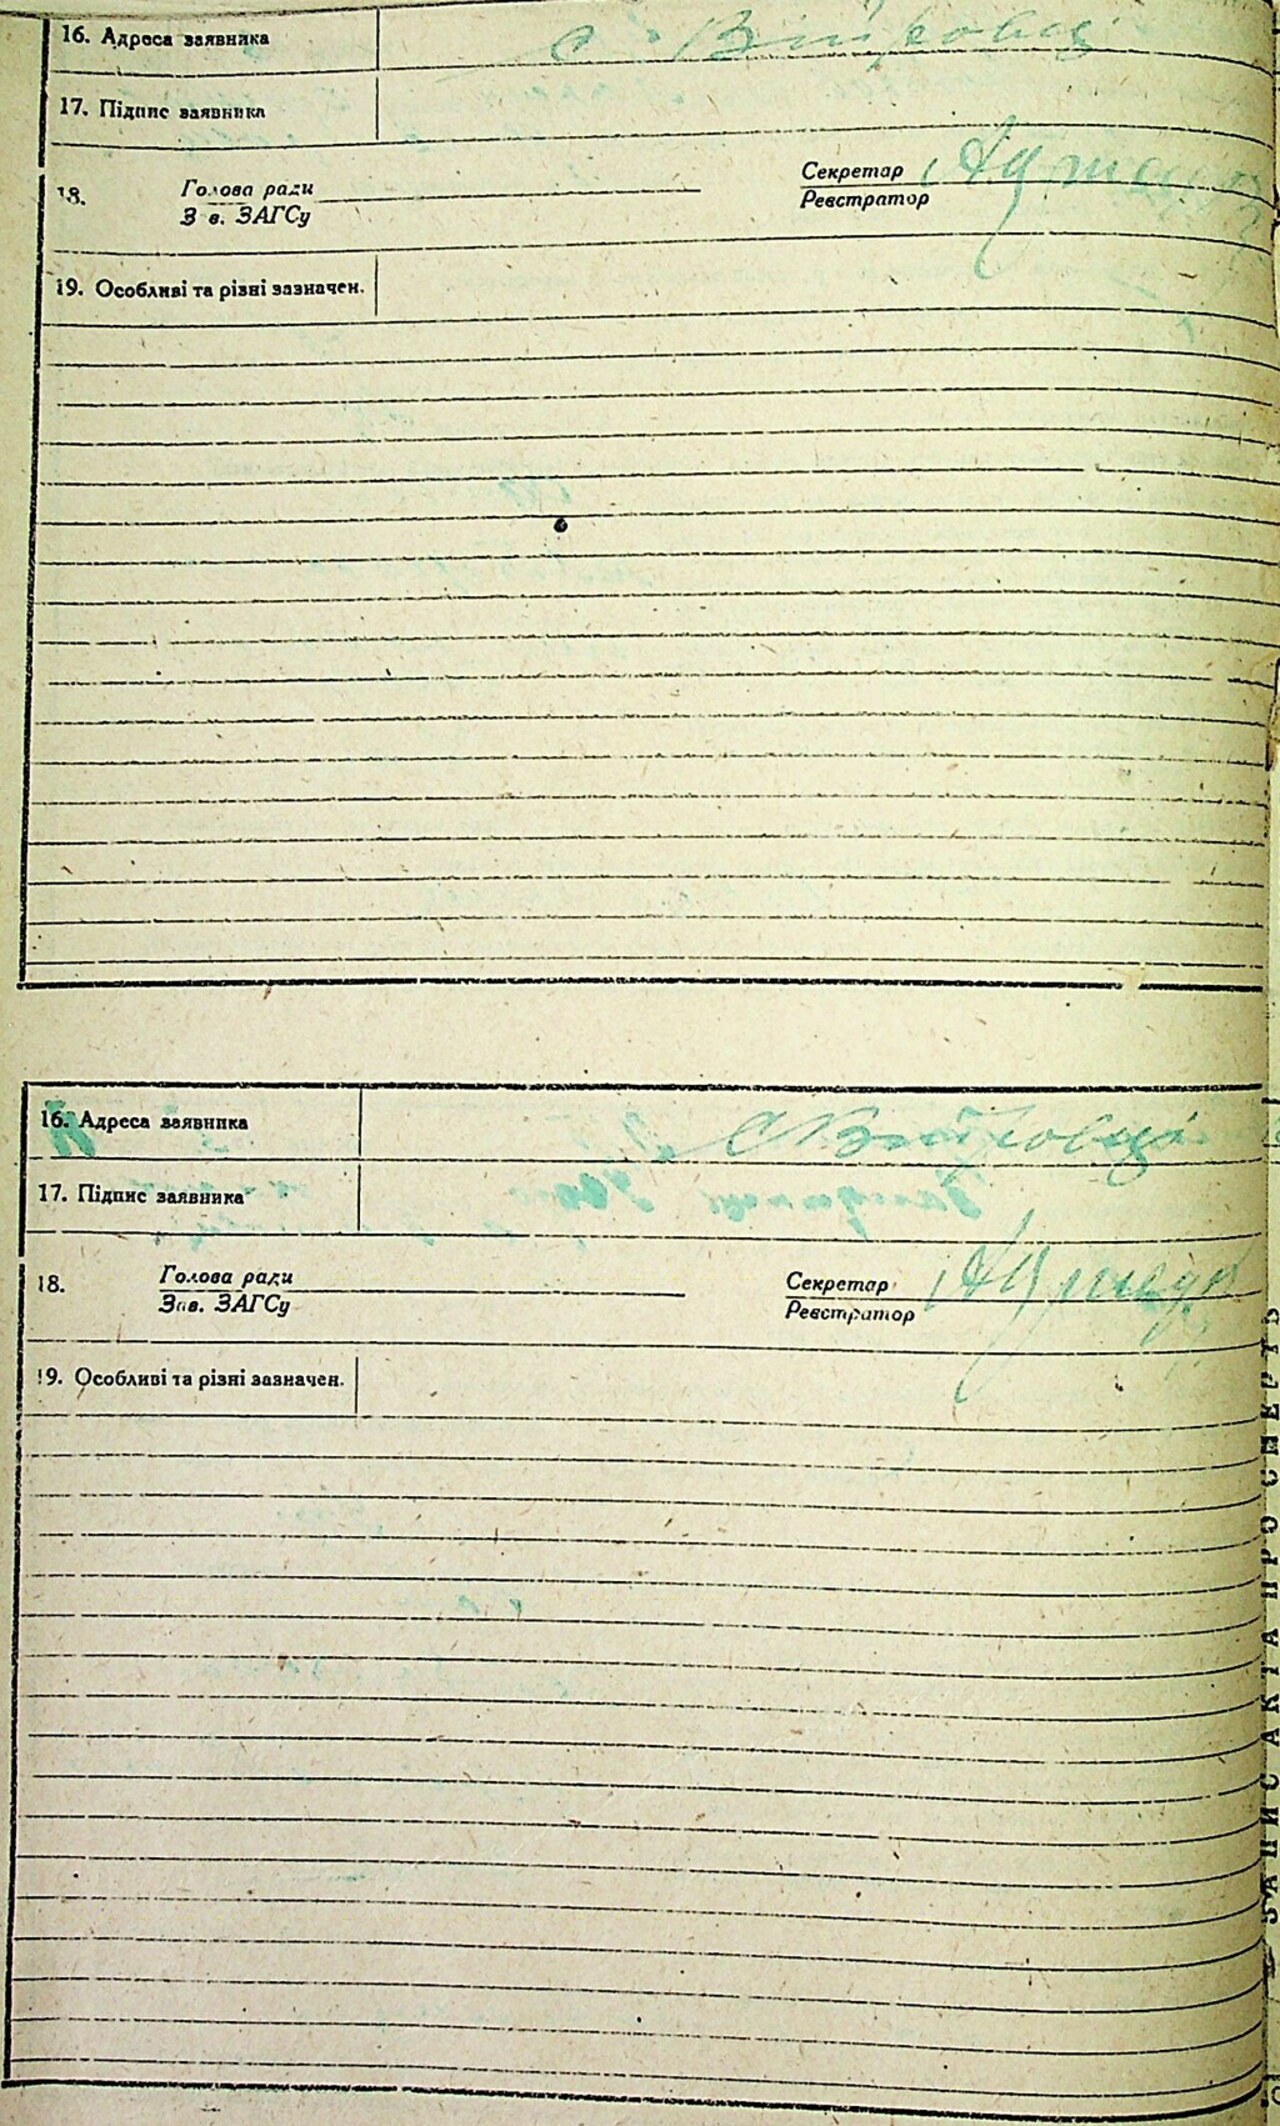 16. Адреса заявника с. Війтовці
17. Підпис заявника
18. Голова ради Секретар
Зав. ЗАГСу Реєстратор
19. Особливі та різні зазначен.
16. Адреса заявника с Війтовці
17. Підпис заявника
18. Голова ради Секретар
Зав. ЗАГСу Реєстратор
19. Особливі та різні зазначен.
ЗАПИС АКТА ПРО СМЕРТЬ